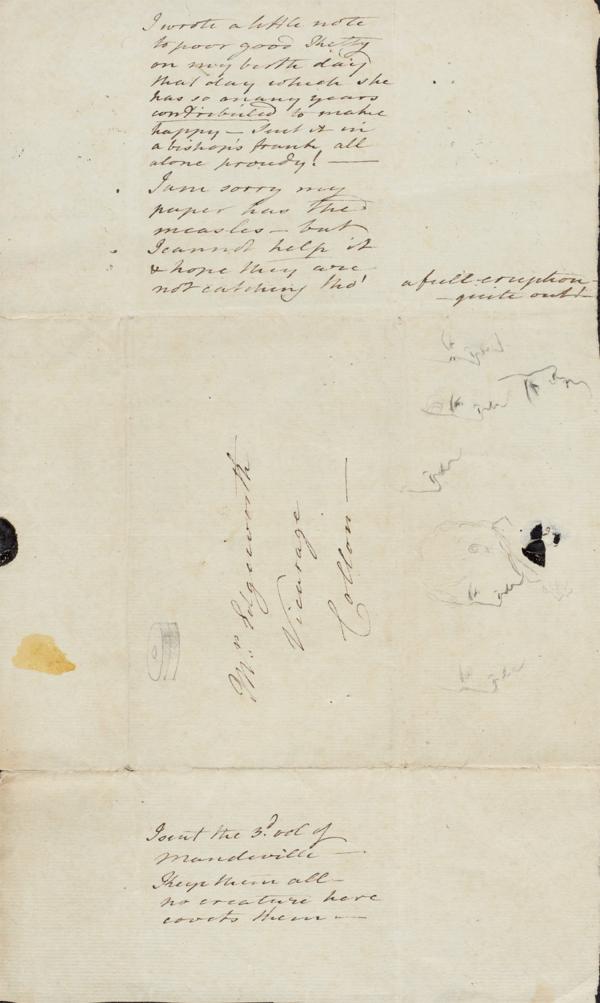 I wrote a little note
to poor good Kitty
on my birth day
that day which she
has so many years
contributed to make
happy — Sent it in
a bishop's frank all
alone proudy! —
I am sorry my
paper has the
measles — but
I cannot help it
& hope they are
not catching tho'
a full eruption —
— quite out! —
Mrs Edgeworth
Vicarage
Collon —
I sent the 3d. vol of
Mandeville —
I keep them all —
no creature here
covets them —